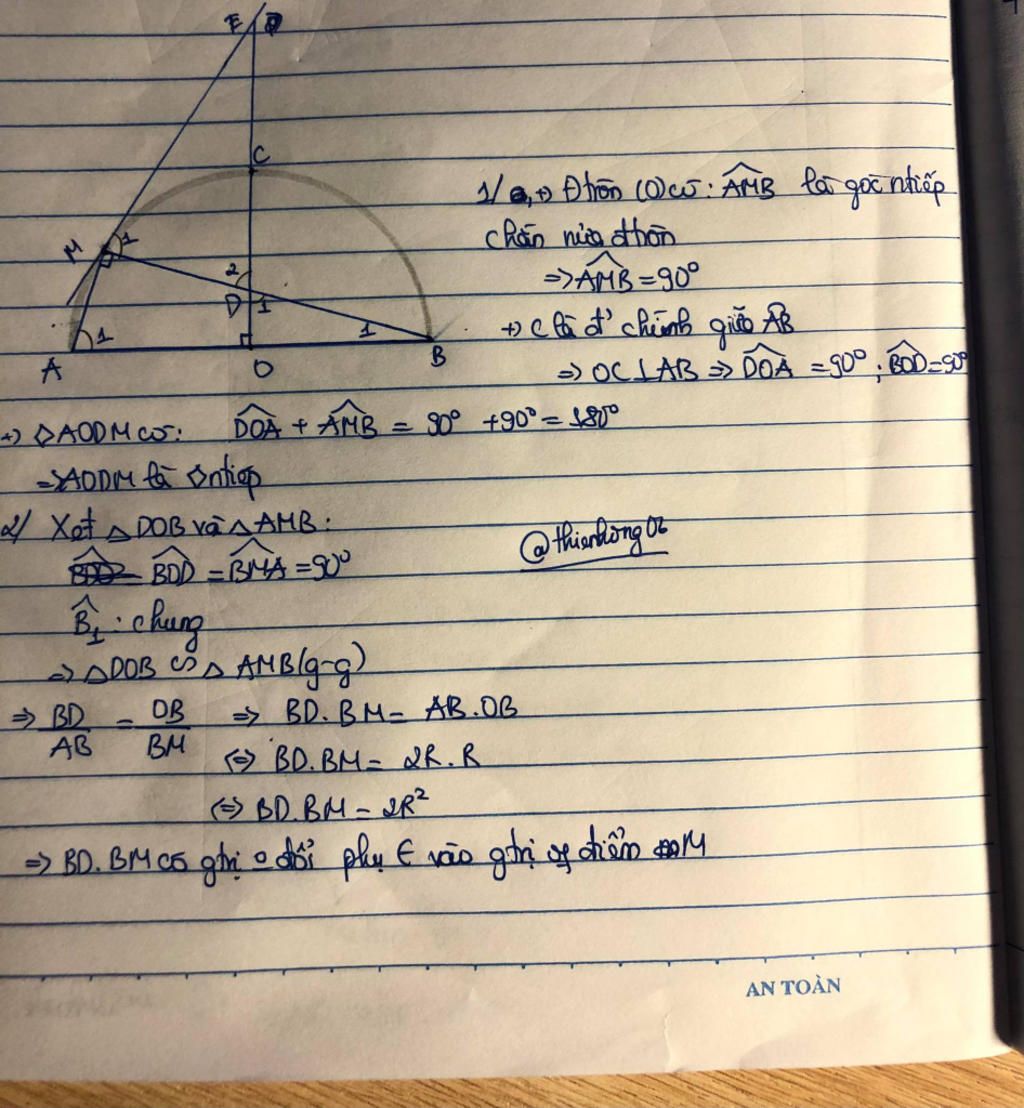 E
C
M
1
2
D
1
1
1
A
O
B
1/ a, +) Đtròn (O) có: AMB là góc ntiếp
chắn nửa đtròn
=> AMB = 90°
+) C là đ' chính giữa AB
=> OC⊥AB => DOA = 90°; BOD = 90°
+) ◇AODM có: DOA + AMB = 90° + 90° = 180°
=> AODM là ◇ntiếp
2/ Xét △DOB và △AMB:
BOD = BMA = 90°
B1: chung
=> △DOB ∽ △AMB (g-g)
=> BD/AB = OB/BM => BD.BM = AB.OB
<=> BD.BM = 2R.R
<=> BD.BM = 2R²
=> BD.BM có gtrị o đổi phụ ∈ vào gtrị điểm M
@thienhong02
AN TOÀN